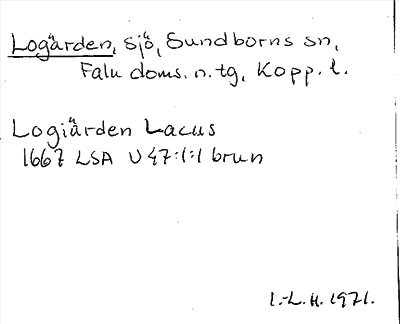 Logärden, sjö, Sundborns sn,
Falu doms. n. tg, Kopp. l.
Logiärden Lacus
1667 LSA U 47:1:1 brun
I.-L. H. 1971.